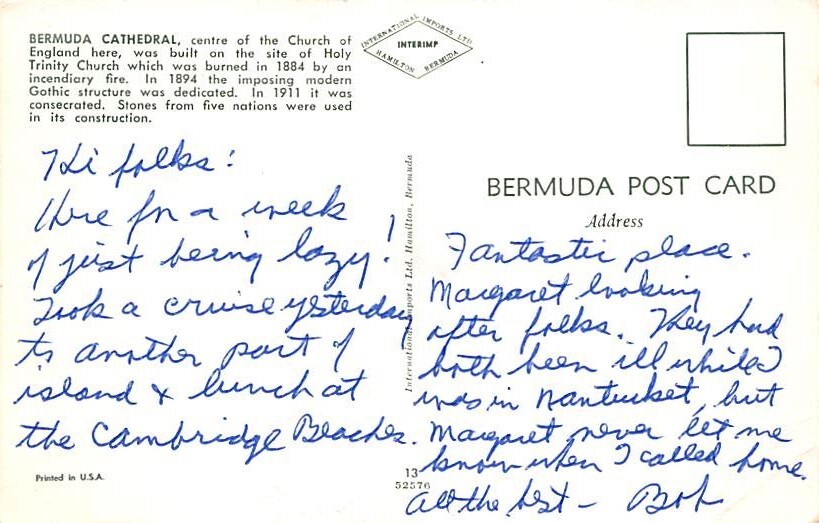 BERMUDA CATHEDRAL, centre of the Church of
England here, was built on the site of Holy
Trinity Church which was burned in 1884 by an
incendiary fire. In 1894 the imposing modern
Gothic structure was dedicated. In 1911 it was
consecrated. Stones from five nations were used
in its construction.
INTERNATIONAL IMPORTS LTD
INTERIMP
HAMILTON BERMUDA
Hi folks:
Here for a week
of just being lazy!
Took a cruise yesterday
to another part of
island & lunch at
the Cambridge Beaches.
Printed in U.S.A.
International Imports Ltd. Hamilton, Bermuda
13
52576
BERMUDA POST CARD
Address
Fantastic place.
Margaret looking
after folks. They had
both been ill while I
was in Nantucket, but
Margaret never let me
know when I called home.
All the best – Bob